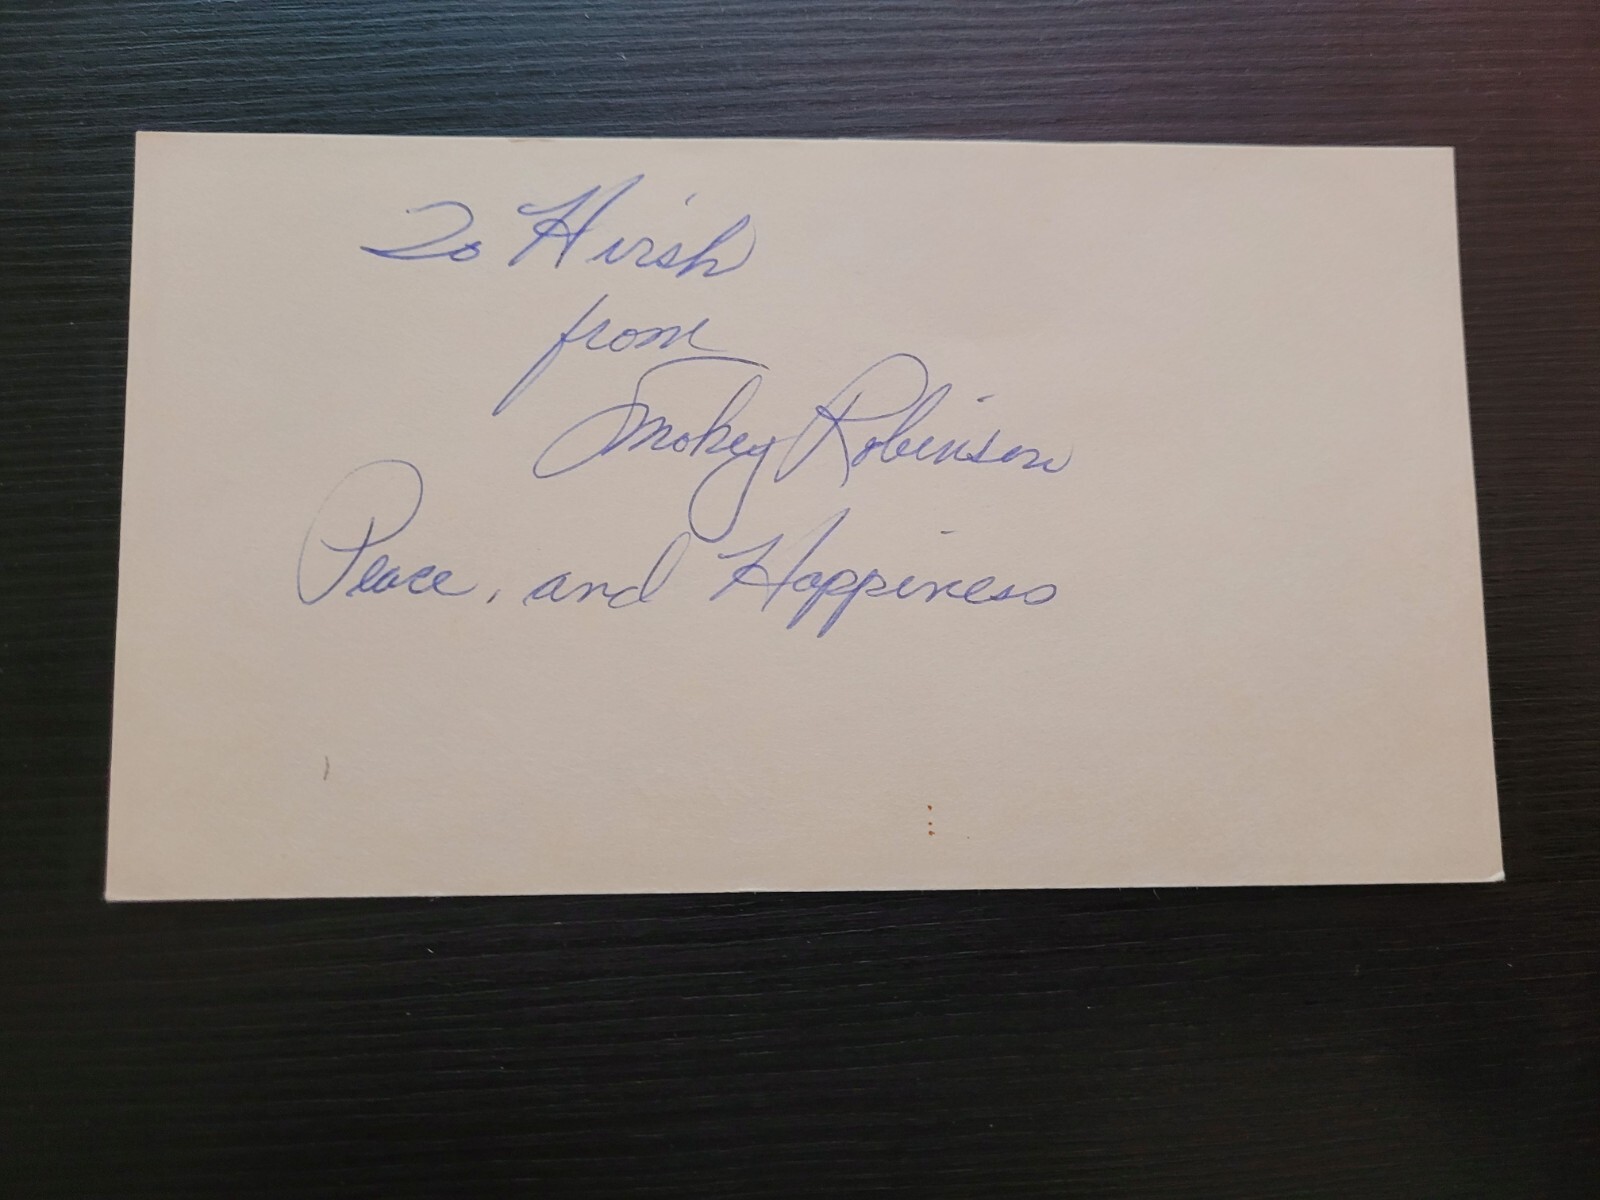 To Hirsh
from
Smokey Robinson
Peace, and Happiness